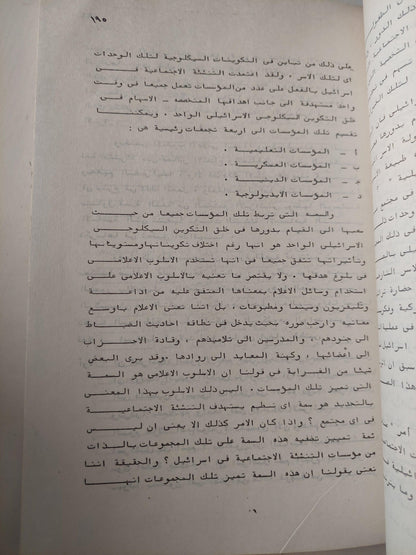 ١٩٥
على ذلك من تباين فى التكوينات السيكلوجية لتلك الوحدات
اى لتلك الاسر . ولقد اعتمدت التنشئة الاجتماعية فــــى
اسرائيل بالفعل على عدد من المؤسات تعمل جميعا فى وقت
واحد مستهدفة الى جانب اهدافها المتخصصه ــ الاسهام فى
خلق التكوين السيكلوجى الاسرائيلى الواحد . ويمكننــا
تقسيم تلك المؤسات الى اربعة تجمعات رئيسية هى :
أ ــ المؤسات التعليمية .
ب ــ المؤسات العسكرية .
جـ ــ المؤسات الدينية .
د ــ المؤسات الايديولوجية .
والسمه التى تربط تلك المؤسات جميعا من حيـــث
سعيها الى القيام بدورها فى خلق التكوين السيكلوجــى
الاسرائيلى الواحد هو انها رغم اختلاف تكويناتها ومستوياتها
وتأثيراتها تتفق جميعا فى انها تستخدم الاسلوب الاعلامى
فى بلوغ هدفها . ولا يقتصر ما نعنيه بالاسلوب الاعلامى على
استخدام وسائل الاعلام بمعناها المتفق عليه من اذاعــة
وتليفزيون وسينما ومطبوعات ، بل اننا نعنى الاعلام بأوسع
معانيه وارحب صوره بحيث يدخل فى نطاقه احاديث الضبــاط
الى جنودهم ، والمدرسين الى تلاميذهم ، وقادة الاحــزاب
الى اعضائها ، وكهنة المعابد الى روادها .وقد يرى البعض
شيئا من الغرابة فى قولنا ان الاسلوب الاعلامى هو السمـة
التى تميز تلك المؤسات . اليس ذلك الاسلوب بهذا المعنــى
بالتحديد هو سمة اى تنظيم يستهدف التنشئة الاجتماعيــة
فى اى مجتمع ؟ واذا كان الامر كذلك الا يعنى ان ليـــس
ثمة تمييز تضفيه هذه السمة على تلك المجموعات بالــذات
من مؤسات التنشئة الاجتماعية فى اسرائيل ؟ والحقيقة اننا
نعنى بقولنا ان هذه السمة تميز تلك المجموعات انهــا